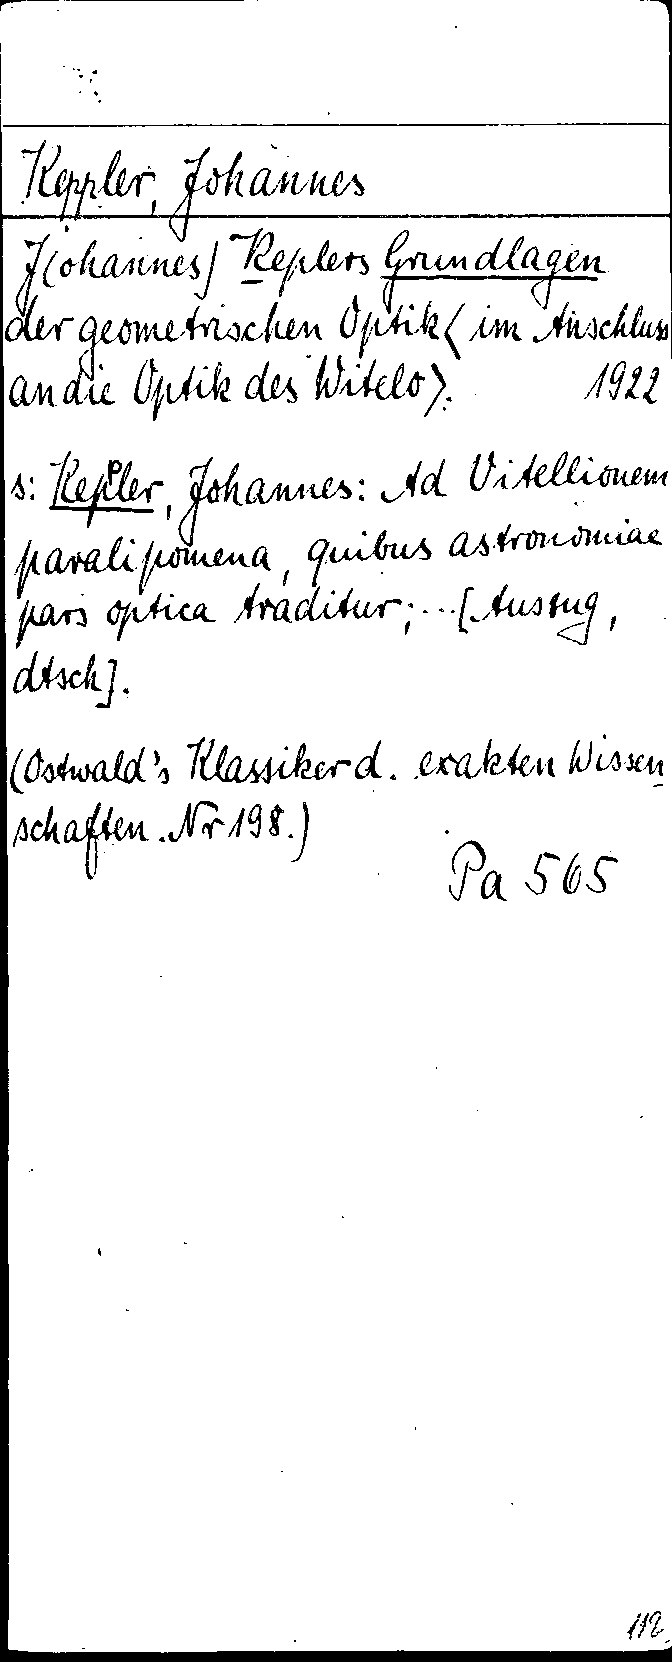 Keppler, Johannes
J(ohannes) Keplers Grundlagen
der geometrischen Optik < im Anschluss
an die Optik des Witelo >. 1922
s: Keppler, Johannes: Ad Vitellionem
paralipomena, quibus astronomiae
pars optica traditur; ... [Auszug,
dtsch].
(Ostwald's Klassiker d. exakten Wissen
schaften. Nr 198.)
Pa 565
112